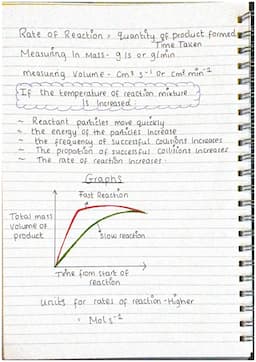 Rate of Reaction = quantity of product formed
Time Taken
Measuring in Mass - g/s or g/min
measuring volume - cm³ s⁻¹ or cm³ min⁻¹
If the temperature of reaction mixture
is increased
~ Reactant particles move quickly
~ the energy of the particles increase
~ the frequency of successful collisions increases
~ The proportion of successful collisions increases
~ The rate of reaction increases
Graphs
Fast Reaction
Total mass
volume of
product
slow reaction
Time from start of
reaction
Units for rates of reaction - Higher
• Mol s⁻¹